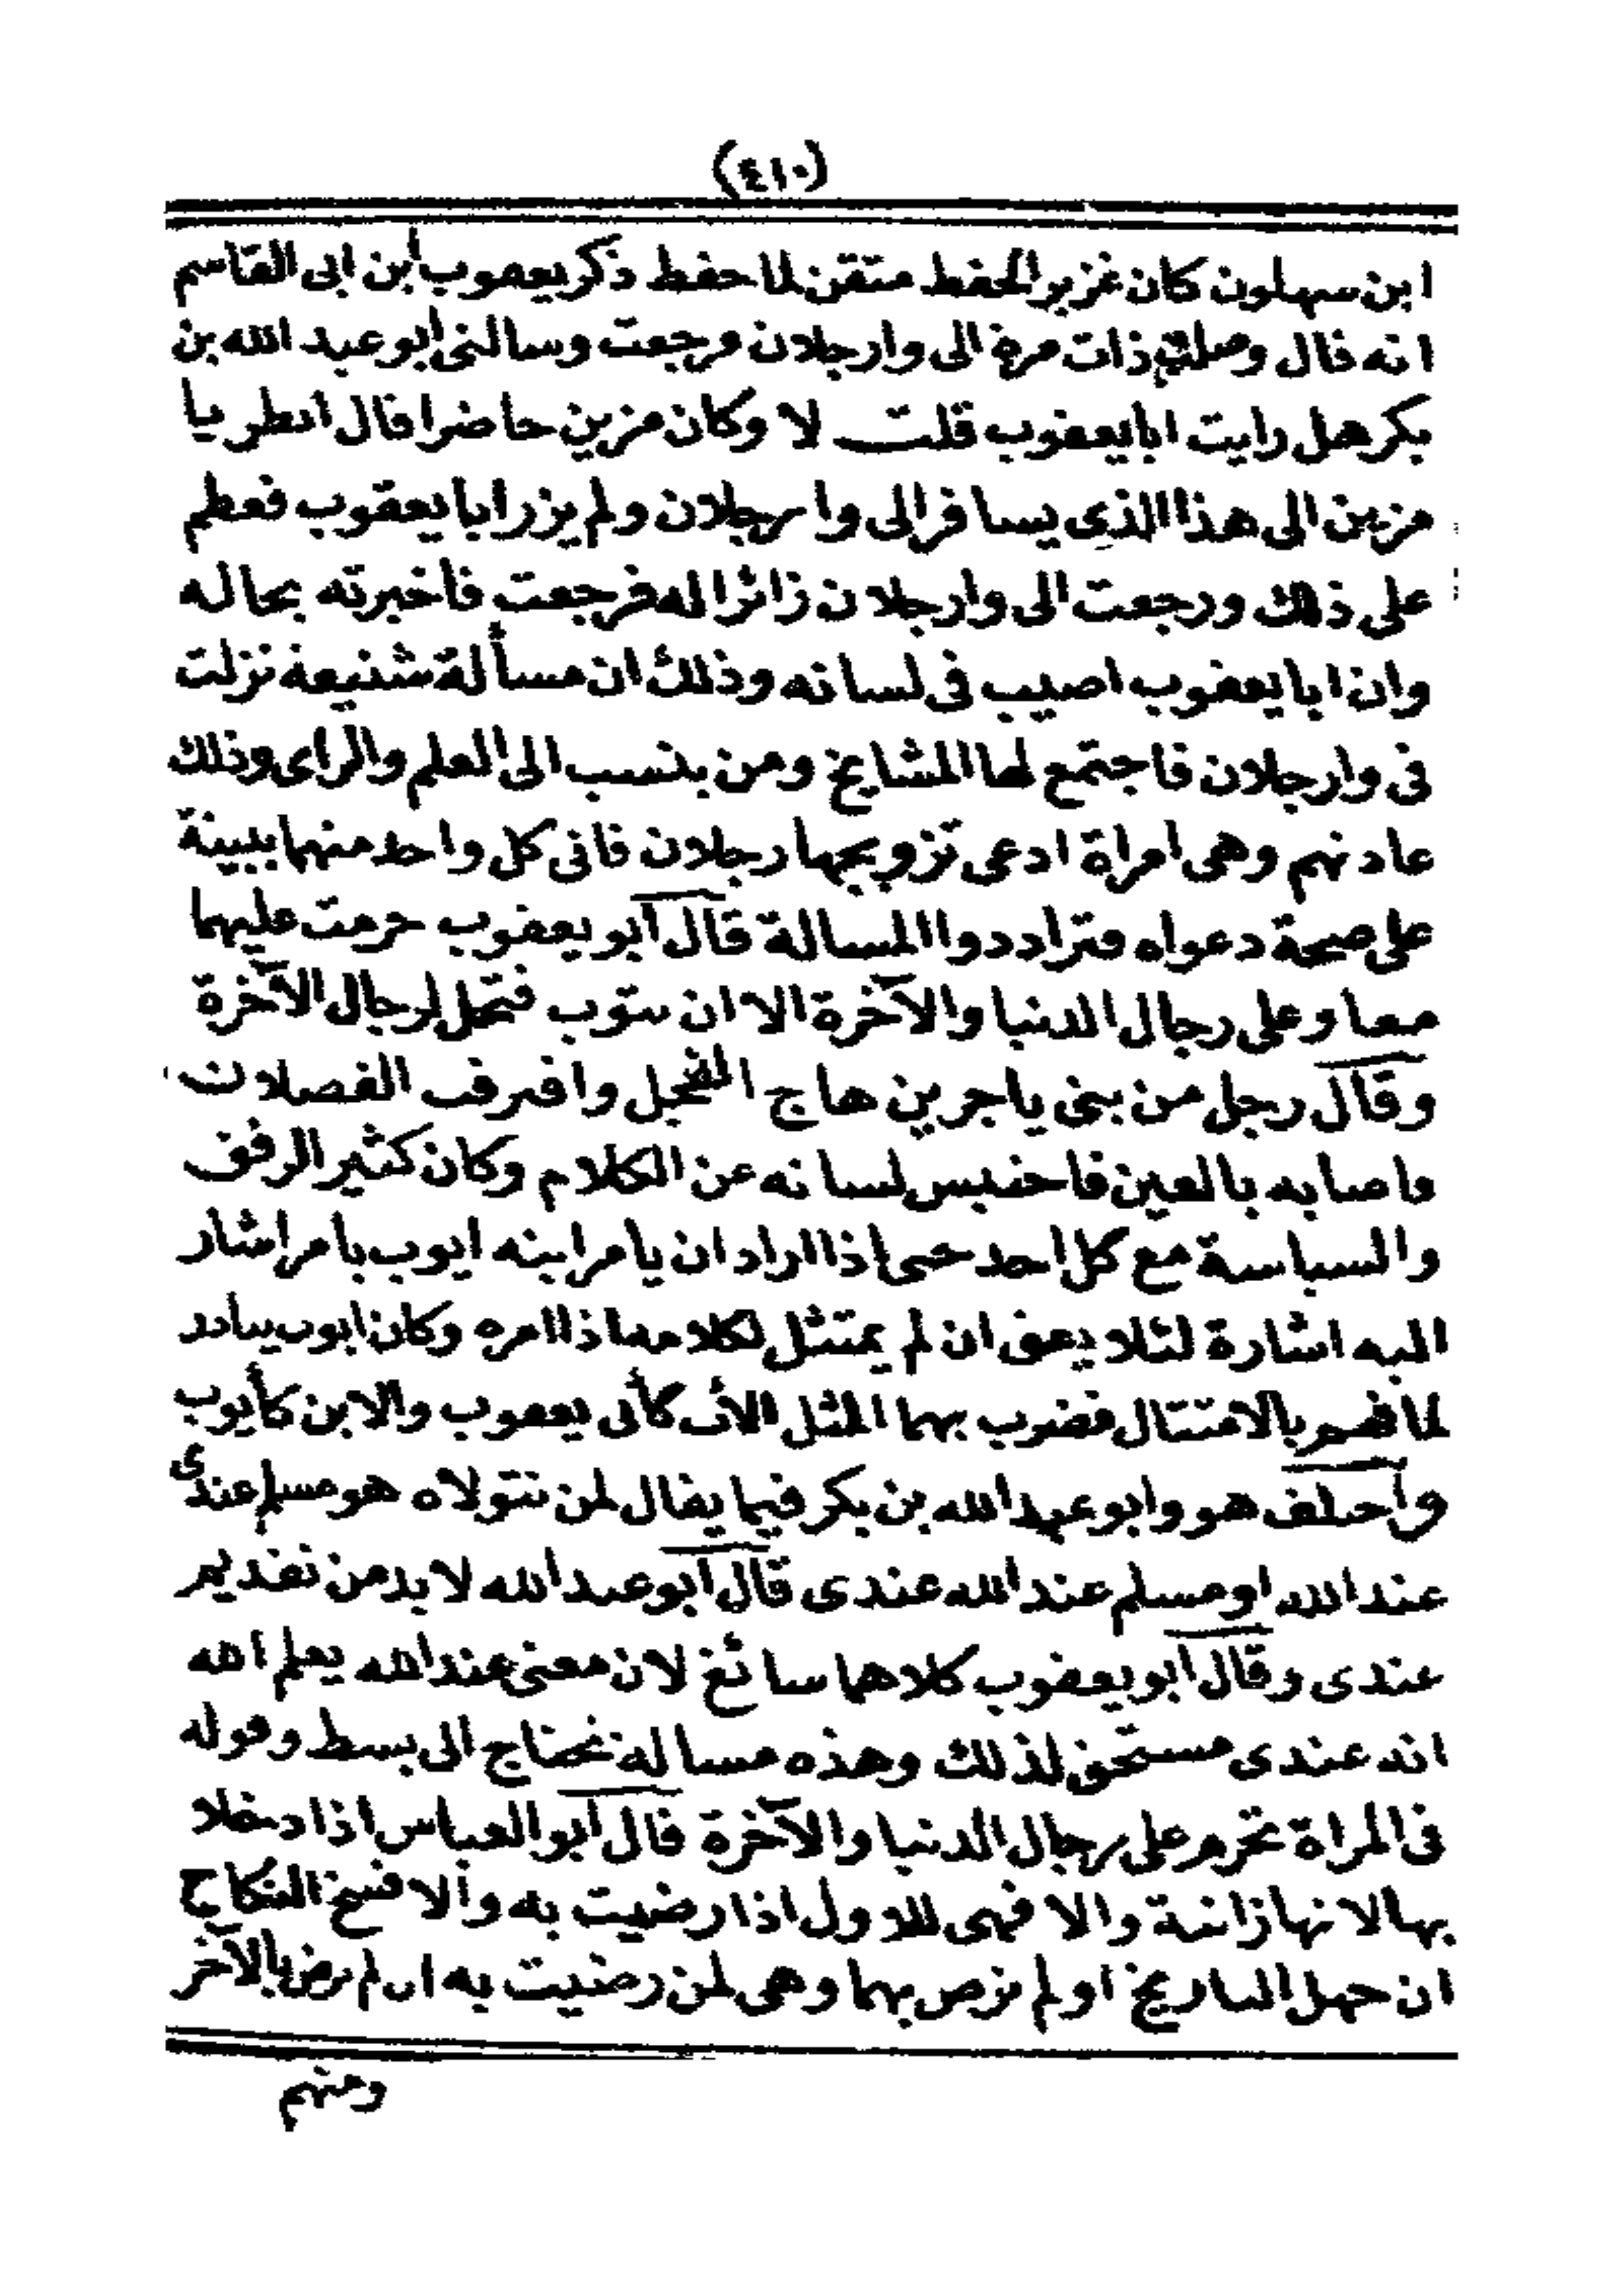 (٤١٠)
ابن سهلون كان غزير الحفظ متقن لما حفظ ذكر يعقوب بن ابى القاسم
انه قال وصلت ذات مرة الى وارجلان فرجعت وسالنى أبو عبد الله بن
بكر هل رايت ابا يعقوب قلت لا وكان مزين حاضرا فقال انظر يا
مزين الى هذا الذى يسافر الى وارجلان ولم يزر ابا يعقوب فعظم
على ذلك ورجعت الى وارجلان زائرا له فرجعت فأخبرته بحاله
وان ابا يعقوب اصيب فى لسانه وذلك ان مسألة شنيعة نزلت
فى وارجلان فاجتمع لها المشايخ ومن ينسب الى العلم والراى وذلك
عادتهم وهى امراة ادعى تزويجها رجلان فاتى كل واحد منهما ببينة
على صحة دعواه فترادوا المسالة قال أبو يعقوب حرمت عليهما
معا وعلى رجال الدنيا والآخرة الا ان تتوب فتحل لرجال الآخرة
وقال رجل من بنى ياجرين هاج الفحل وافترقت الفصلات
واصابه بالعين فاحتبس لسانه عن الكلام وكان كثير الرفق
والسياسة مع كل احد حتى اذا اراد ان يامر ابنه ايوب بامر اشار
اليه اشارة لئلا يعق ان لم يمتثل لكلامه اذا امره وكان ايوب يبادر
لما فهم بالامتثال فضرب بهما المثل الأب كأبى يعقوب والابن كأيوب
وأختلف هو وابو عبد الله بن بكر فيما يقال لمن نتولاه هو مسلم عندى
عند الله او مسلم عند الله عندى قال أبو عبد الله لا بد من تقديم
عندى وقال أبو يعقوب كلاهما سائغ لان معنى عند الله يعلم الله
انه عندى مستحق لذلك وهذه مسالة تحتاج الى بسط وقوله
فى المراة تحرم على رجال الدنيا والآخرة قال أبو العباس اذا دخلا
بها لانها زانية والا فهى للاول اذا رضيت به وألا فسخ النكاح
ان جهل التاريخ او لم ترض بهما وهى لمن رضيت به ان لم ترض بالآخر
ومنهم